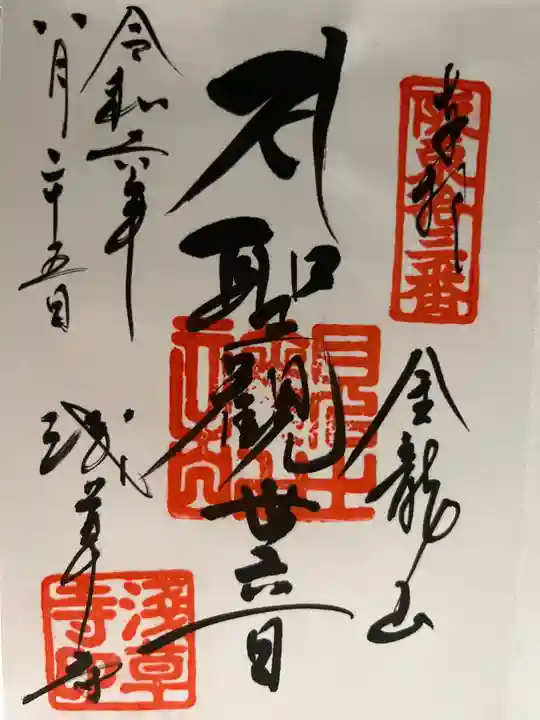 奉拝
坂東十三番
金龍山
聖観世音
浅草寺
令和六年
八月二十五日
浅草寺印